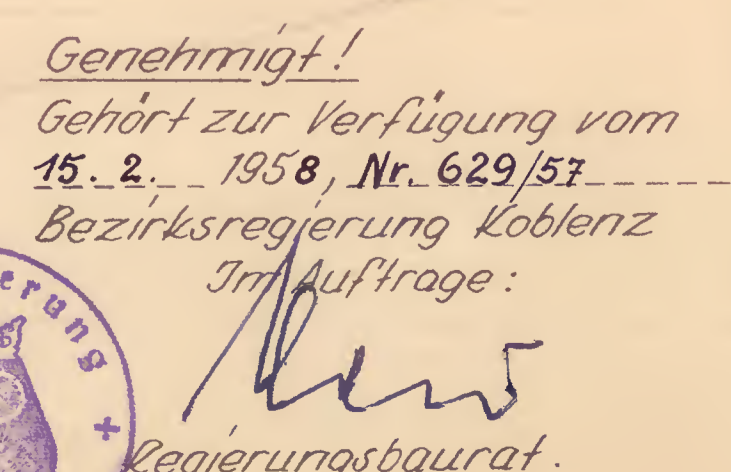 Genehmigt!
Gehört zur Verfügung vom
15. 2. 1958, Nr. 629/57
Bezirksregierung Koblenz
Im Auftrage:
erung +
Regierungsbaurat.